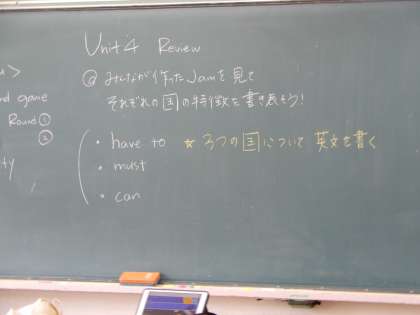 Unit 4 Review
◎ みんなが作ったJamを見て
それぞれの国の特徴を書き表そう!
nd game
Round ①
②
ty
・have to ☆3つの国について英文を書く
・must
・can